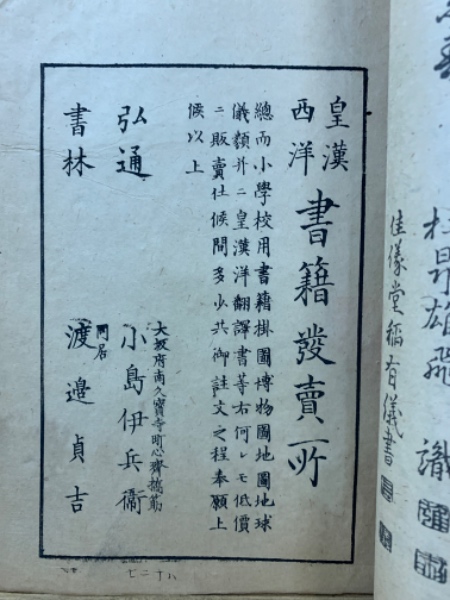 皇漢
西洋
書籍發賣所
總而小學校用書籍掛圖博物圖地圖地球
儀類并ニ皇漢洋翻譯書等右何レモ低價
ニ販賣仕候間多少共御註文之程奉願上
候以上
大坂府南久寶寺町心齋橋
弘通 小島伊兵衞
同居
書林 渡邉貞吉
雄飛 識
佳儀堂稲有儀書